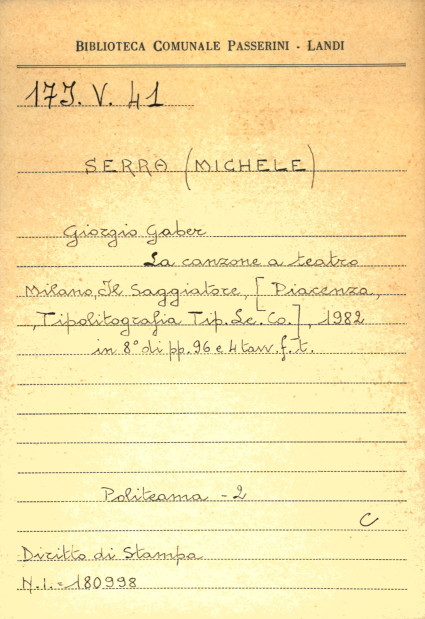 BIBLIOTECA COMUNALE PASSERINI - LANDI
17J. V. 41
SERRA (MICHELE)
Giorgio Gaber
La canzone a teatro
Milano, Il Saggiatore, [Piacenza,
, Tipolitografia Tip.Le.Co.], 1982
in 8° di pp. 96 e 4 tavv. f. t.
Politeama - 2
C
Diritto di Stampa
N.i. = 180998